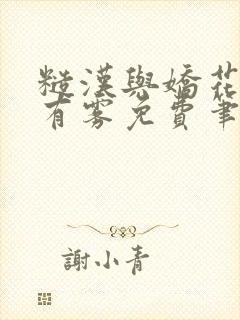 糙漢與嬌花
有霧免費筆
謝小青